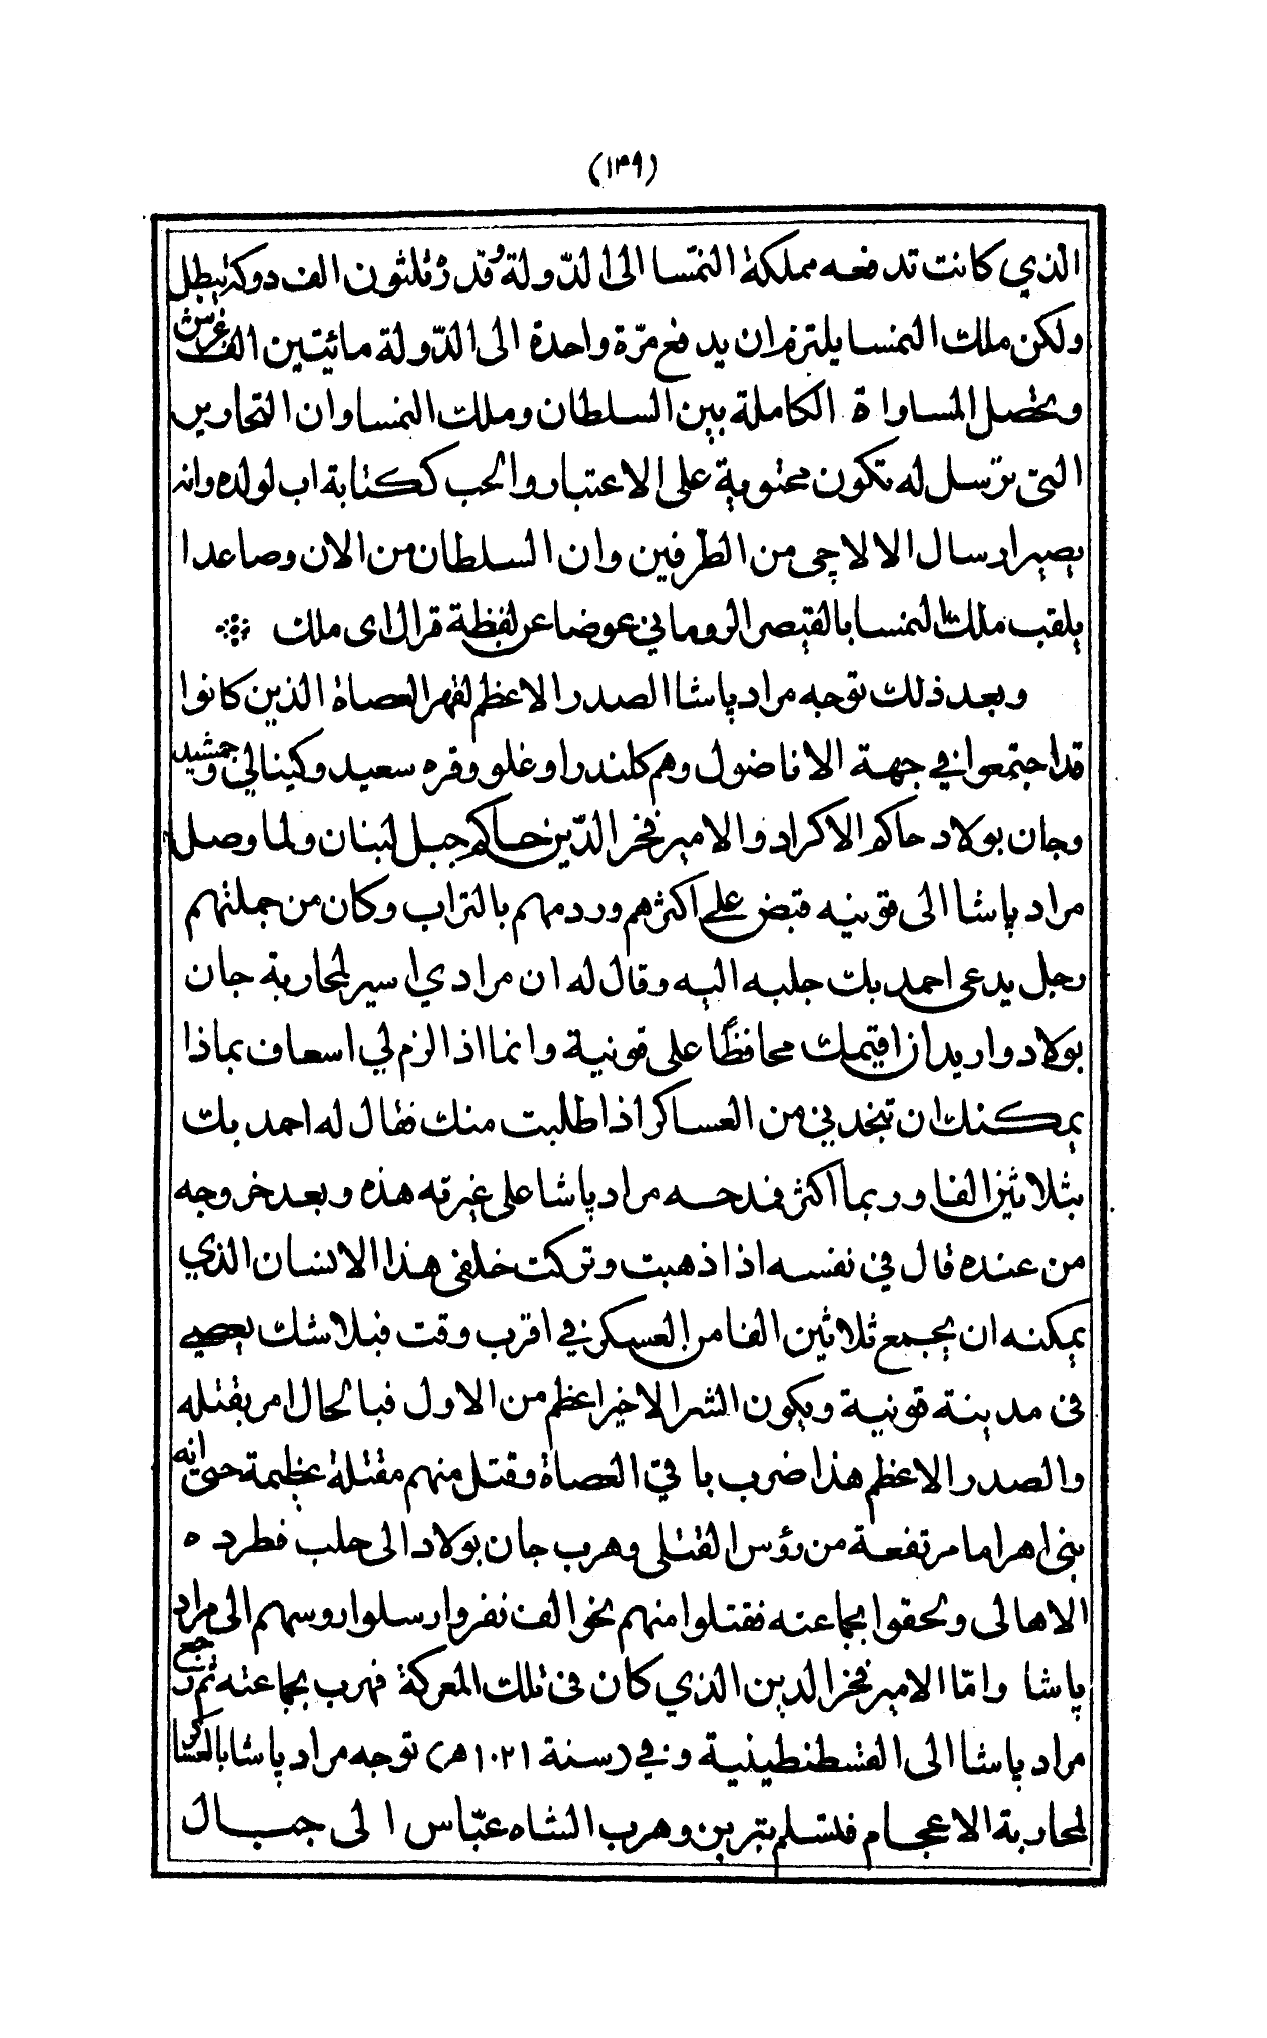 (١٣٩)
الذي كانت تدفعه مملكة النمّسا الى الدّولة وقدرُ ثلثون الف دوكة تبطل
ولكن ملك النمسا يلتزم ان يدفع مرّة واحدة الى الدّولة مائيتين الف غرش
ويحصل المساواة الكاملة بين السلطان وملك النمسا وان التحارير
التى ترسل له تكون محتوية على الاعتبار والحب ككتابة اب لولده وانه
يصير ارسال الالاچى من الطرفين وان السلطان من الان وصاعدا
يلقب ملك النمسا بالقيصر الروماني عوضا عن لفظة قرال اى ملك
وبعد ذلك توجه مراد پاشا الصدر الاعظم لقهر العصاة الذين كانوا
قد اجتمعوا في جهة الاناضول وهم كلندر اوغلو وقره سعيد وكينالي وجمشيد
وجان بولاد حاكم الاكراد والامير فخر الدّين حاكم جبل لبنان ولما وصل
مراد پاشا الى قونيه قبض على اكثرهم وردمهم بالتراب وكان من جملتهم
رجل يدعى احمد بك جلبه اليه وقال له ان مرادي اسير لمحاربة جان
بولاد واريد ان اقيمك محافظًا على قونية وانما اذا لزم لي اسعاف بماذا
يمكنك ان تنجدني من العساكر اذا طلبت منك فقال له احمد بك
بثلاثين الفا وربما اكثر فمدحه مراد پاشا على غيرته هذه وبعد خروجه
من عنده قال في نفسه اذا ذهبت وتركت خلفى هذا الانسان الذي
يمكنه ان يجمع ثلاثين الفا من العسكر في اقرب وقت فبلا شك يعصي
فى مدينة قونية ويكون الشر الاخير اعظم من الاول فبالحال امر بقتله
والصدر الاعظم هذا ضرب باقي العصاة وقتل منهم مقتلة عظيمة حتى انه
بنى اهراما مرتفعة من رؤس القتلى وهرب جان بولاد الى حلب فطرده
الاهالى ولحقوا بجماعته فقتلوا منهم نحو الف نفر وارسلوا روسهم الى مراد
پاشا وامّا الامير فخر الدين الذي كان فى تلك المعركة فهرب بجماعته ثم رجع
مراد پاشا الى القسطنطينية وفي (سنة ١٠٢١ ه‍) توجه مراد پاشا بالعساكر
لمحاربة الاعجام فلتسلم تبريز وهرب الشاه عبّاس الى جبال